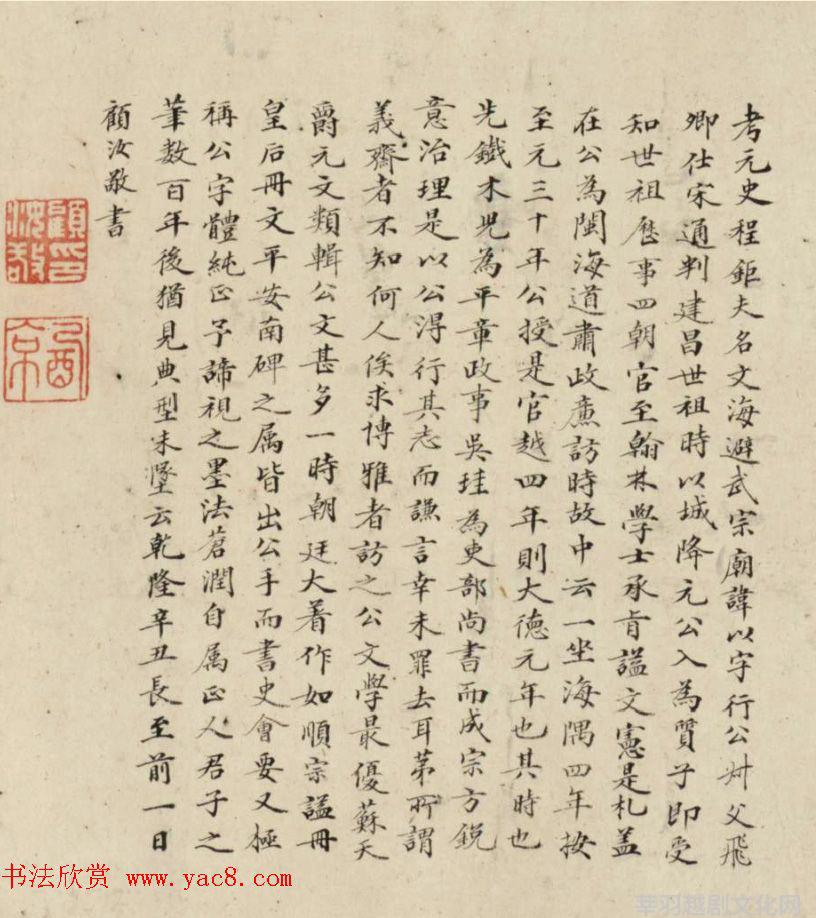 考元史程鉅夫名文海避武宗廟諱以字行公叔父飛
卿仕宋通判建昌世祖時以城降元公入為質子即受
知世祖歷事四朝官至翰林學士承肯謚文憲是札盖
在公為閩海道肅政廉訪時故中云一坐海隅四年按
至元三十年公授是官越四年則大德元年也其時也
先鐵木児為平章政事吳珪為吏部尚書而成宗方銳
意治理是以公得行其志而謙言幸未罪去耳苐所謂
義齋者不知何人俟求博雅者訪之公文學最優蘇天
爵元文類輯公文甚多一時朝廷大著作如順宗謚冊
皇后冊文平安南碑之属皆出公手而書史會要又極
稱公字體純正予諦視之墨法蒼潤自属正人君子之
筆数百年後猶見典型未墜云乾隆辛丑長至前一日
顧汝敬書
顧印汝敬
书法欣赏 www.yac8.com
華羽越剧文化网